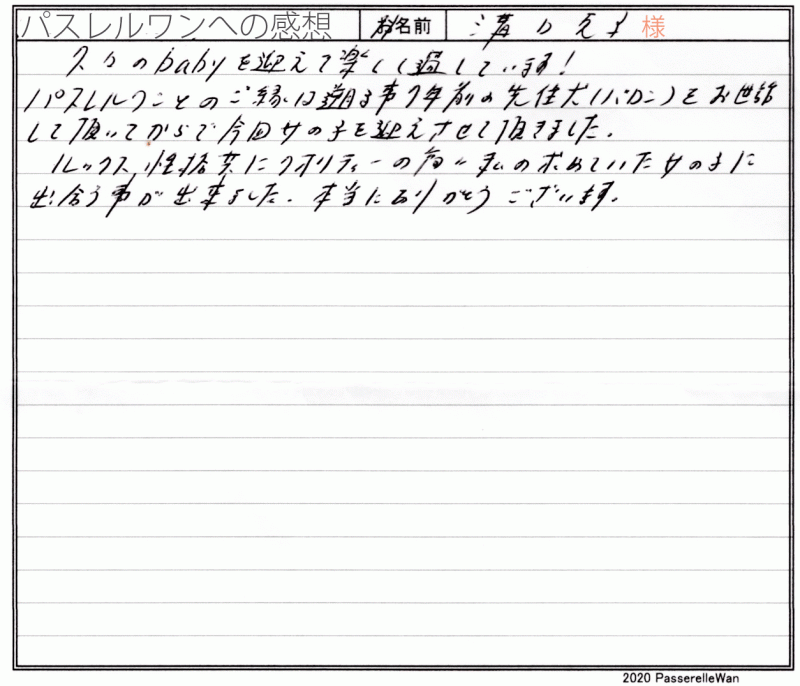 パスレルワンへの感想 お名前 溝口 様
久々のbabyを迎えて楽しく過しています!
パスレルワンとのご縁は遡る事7年前の先住犬(バロン)をお世話
して頂いてからで今回女の子を迎えさせて頂きました。
ルックス、性格共にクオリティーの高い私の求めていた女の子に
出合う事が出来ました。本当にありがとうございます。
2020 PasserelleWan